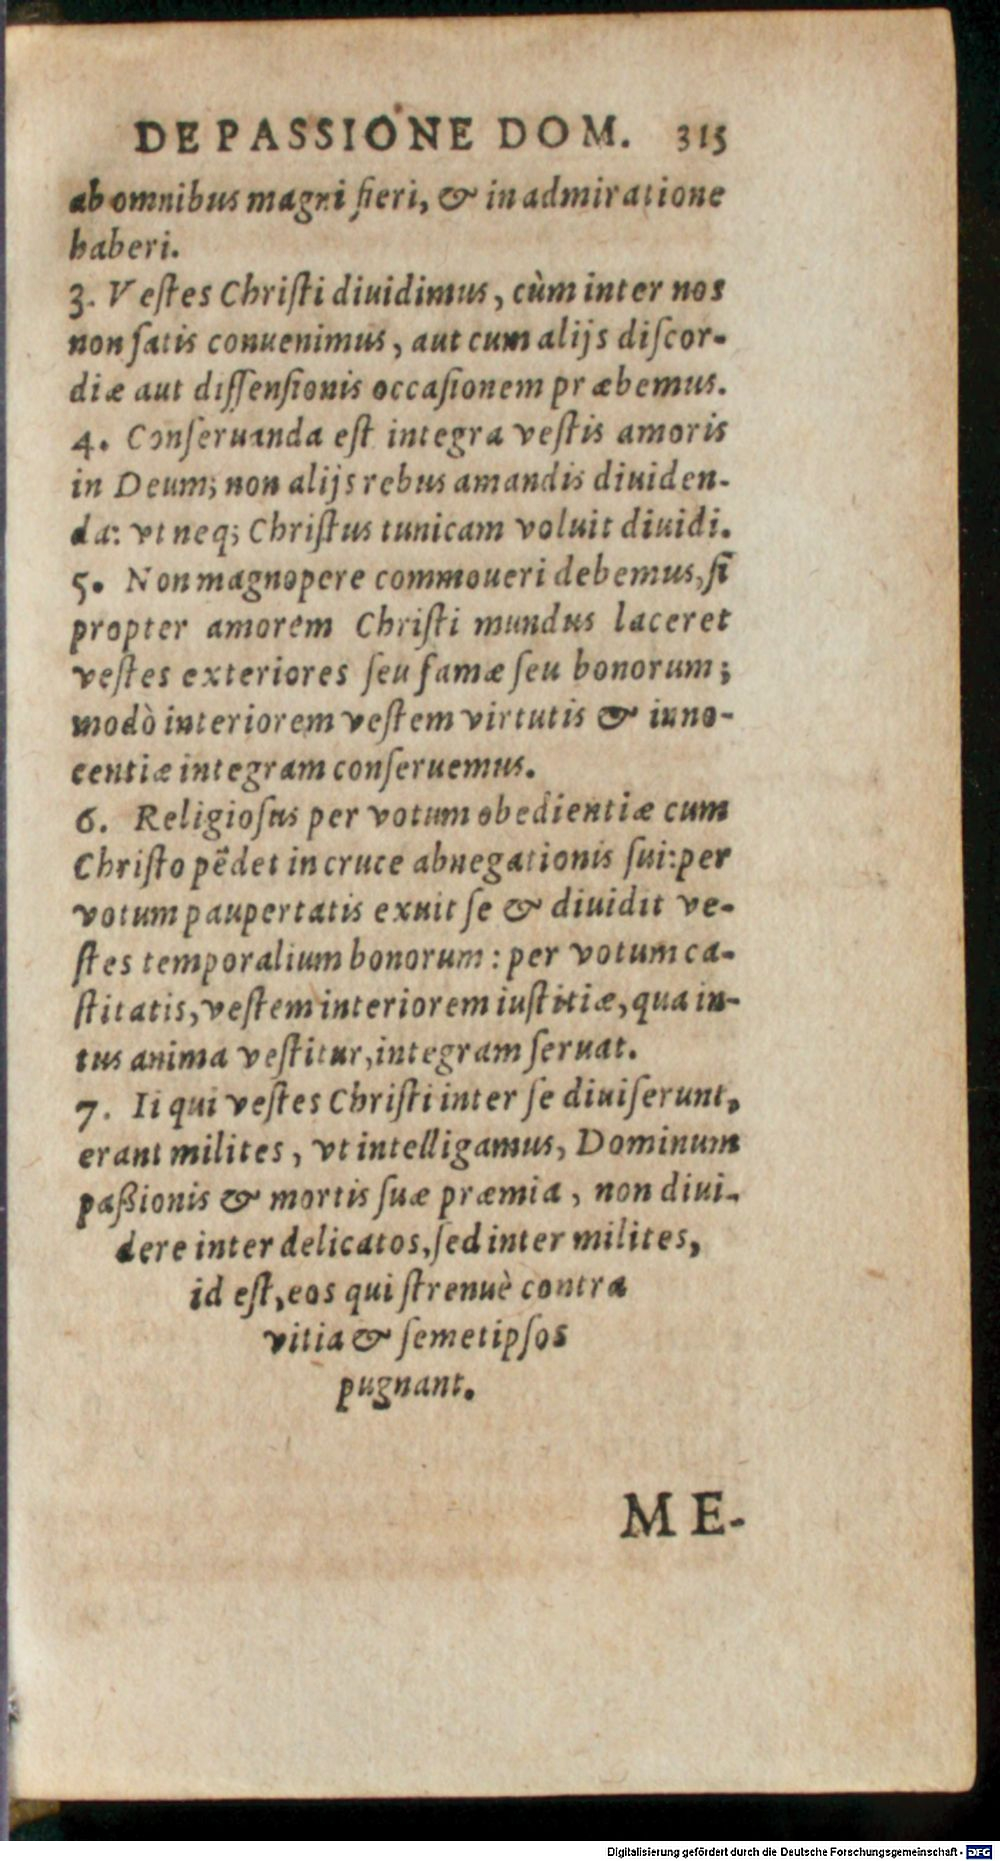 DE PASSIONE DOM. 315
ab omnibus magni fieri, & in admiratione
haberi.
3. Vestes Christi diuidimus, cùm inter nos
non satis conuenimus, aut cum alijs discor-
diæ aut dissensionis occasionem præbemus.
4. Conseruanda est integra vestis amoris
in Deum; non alijs rebus amandis diuiden-
da: vt neq; Christus tunicam voluit diuidi.
5. Non magnopere commoueri debemus, si
propter amorem Christi mundus laceret
vestes exteriores seu famæ seu bonorum;
modò interiorem vestem virtutis & inno-
centiæ integram conseruemus.
6. Religiosus per votum obedientiæ cum
Christo pẽdet in cruce abnegationis sui: per
votum paupertatis exuit se & diuidit ve-
stes temporalium bonorum : per votum ca-
stitatis, vestem interiorem iustitiæ, qua in-
tus anima vestitur, integram seruat.
7. Ii qui vestes Christi inter se diuiserunt,
erant milites, vt intelligamus, Dominum
paßionis & mortis suæ præmia, non diui-
dere inter delicatos, sed inter milites,
id est, eos qui strenuè contra
vitia & semetipsos
pugnant.
ME-
Digitalisierung gefördert durch die Deutsche Forschungsgemeinschaft - DFG